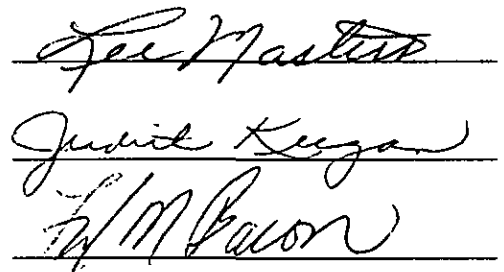 Lee Masters
Judith Keegan
M Bacon